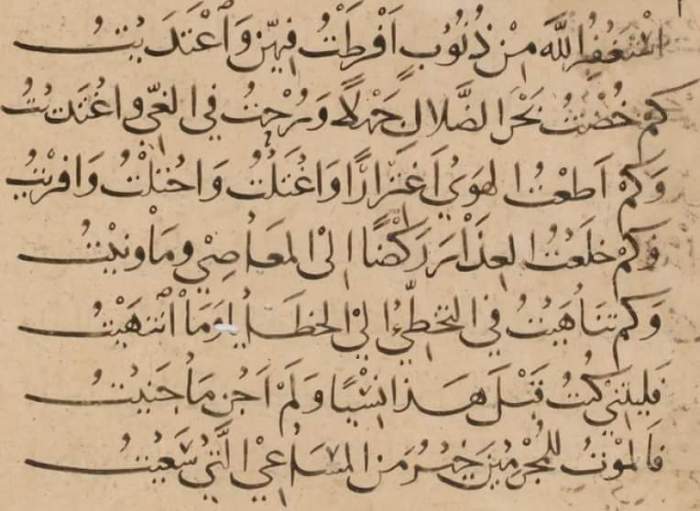 استغفر الله من ذنوب افرطت فيهن واعتديت
كم خضت بحر الضلال جهلا ورحت في الغي واغتديت
وكم اطعت الهوى اغترارا واغتلت واختلت وافتريت
وكم خلعت العذار ركضا الى المعاصي وما ونيت
وكم تناهيت في التخطي الى الخطايا وما انتهيت
فليتني كنت قبل هذا نسيا ولم اجن ما جنيت
فالموت للمجرمين خير من المساعي التي سعيت